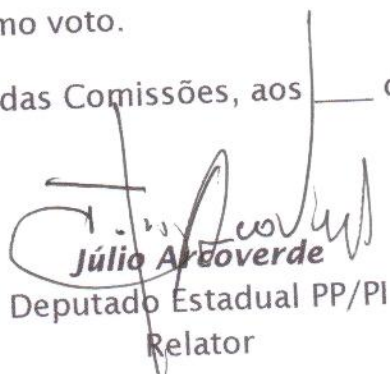 mo voto.
das Comissões, aos ___
Júlio Arcoverde
Deputado Estadual PP/PI
Relator